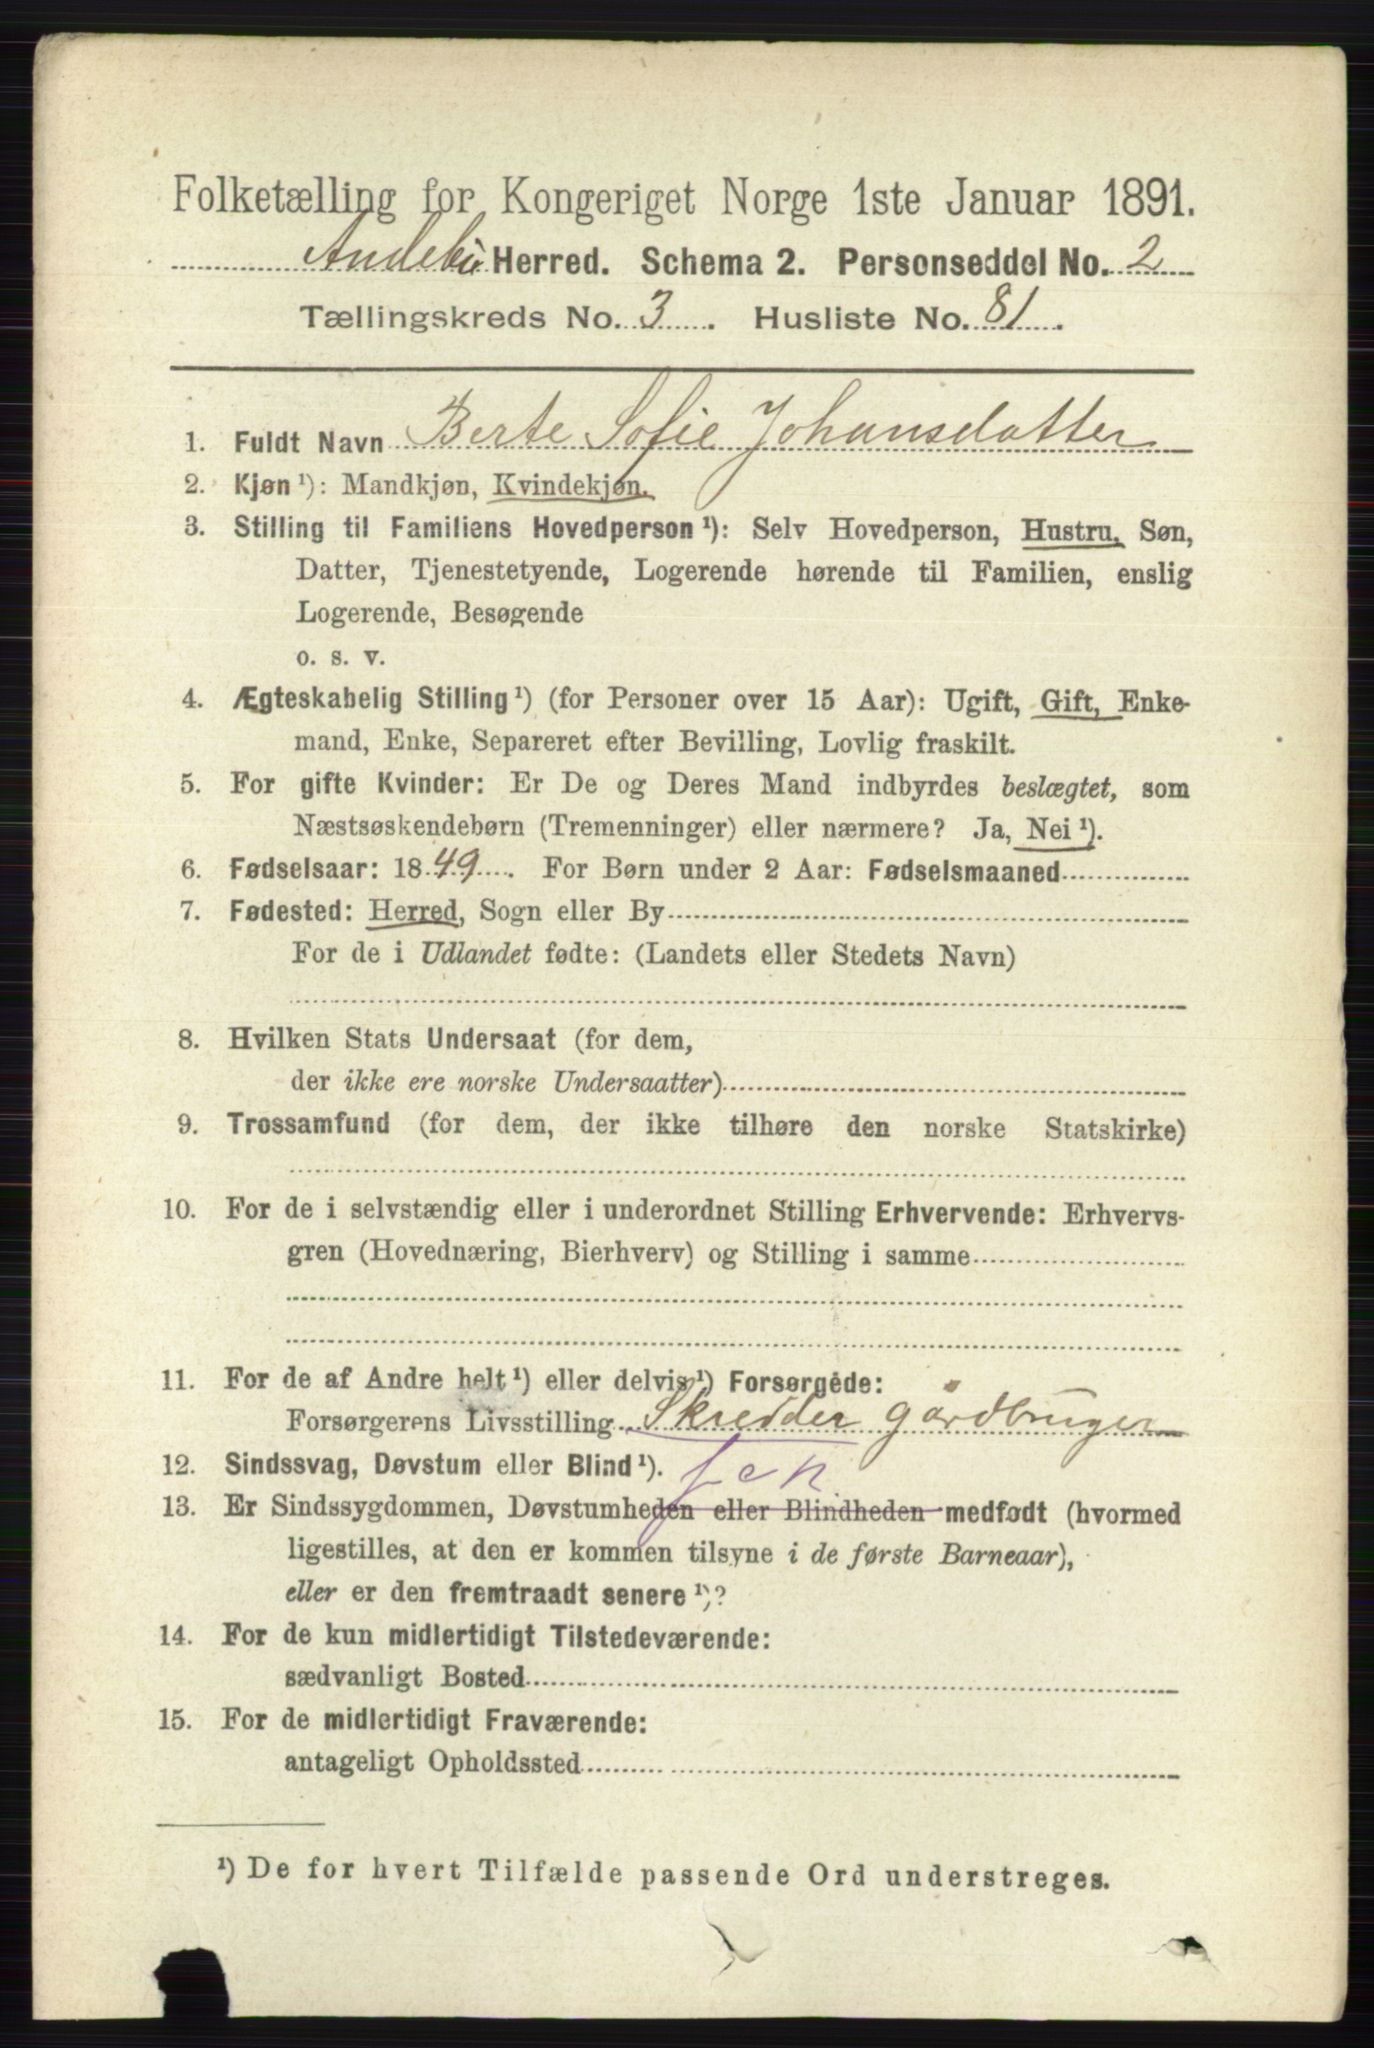 Folketælling for Kongeriget Norge 1ste Januar 1891.
Andebu Herred. Schema 2. Personseddel No. 2
Tællingskreds No. 3. Husliste No. 81.
1. Fuldt Navn Berte Sofie Johansdatter
2. Kjøn ¹): Mandkjøn, Kvindekjøn.
3. Stilling til Familiens Hovedperson ¹): Selv Hovedperson, Hustru, Søn,
Datter, Tjenestetyende, Logerende hørende til Familien, enslig
Logerende, Besøgende
o. s. v.
4. Ægteskabelig Stilling ¹) (for Personer over 15 Aar): Ugift, Gift, Enke-
mand, Enke, Separeret efter Bevilling, Lovlig fraskilt.
5. For gifte Kvinder: Er De og Deres Mand indbyrdes beslægtet, som
Næstsøskendebørn (Tremenninger) eller nærmere? Ja, Nei ¹).
6. Fødselsaar: 1849. For Børn under 2 Aar: Fødselsmaaned
7. Fødested: Herred, Sogn eller By
For de i Udlandet fødte: (Landets eller Stedets Navn)
8. Hvilken Stats Undersaat (for dem,
der ikke ere norske Undersaatter)
9. Trossamfund (for dem, der ikke tilhøre den norske Statskirke)
10. For de i selvstændig eller i underordnet Stilling Erhvervende: Erhvervs-
gren (Hovednæring, Bierhverv) og Stilling i samme
11. For de af Andre helt ¹) eller delvis ¹) Forsørgede:
Forsørgerens Livsstilling Skredder gårdbruger
12. Sindssvag, Døvstum eller Blind ¹).
13. Er Sindssygdommen, Døvstumheden eller Blindheden medfødt (hvormed
ligestilles, at den er kommen tilsyne i de første Barneaar),
eller er den fremtraadt senere ¹)?
14. For de kun midlertidigt Tilstedeværende:
sædvanligt Bosted
15. For de midlertidigt Fraværende:
antageligt Opholdssted
¹) De for hvert Tilfælde passende Ord understreges.